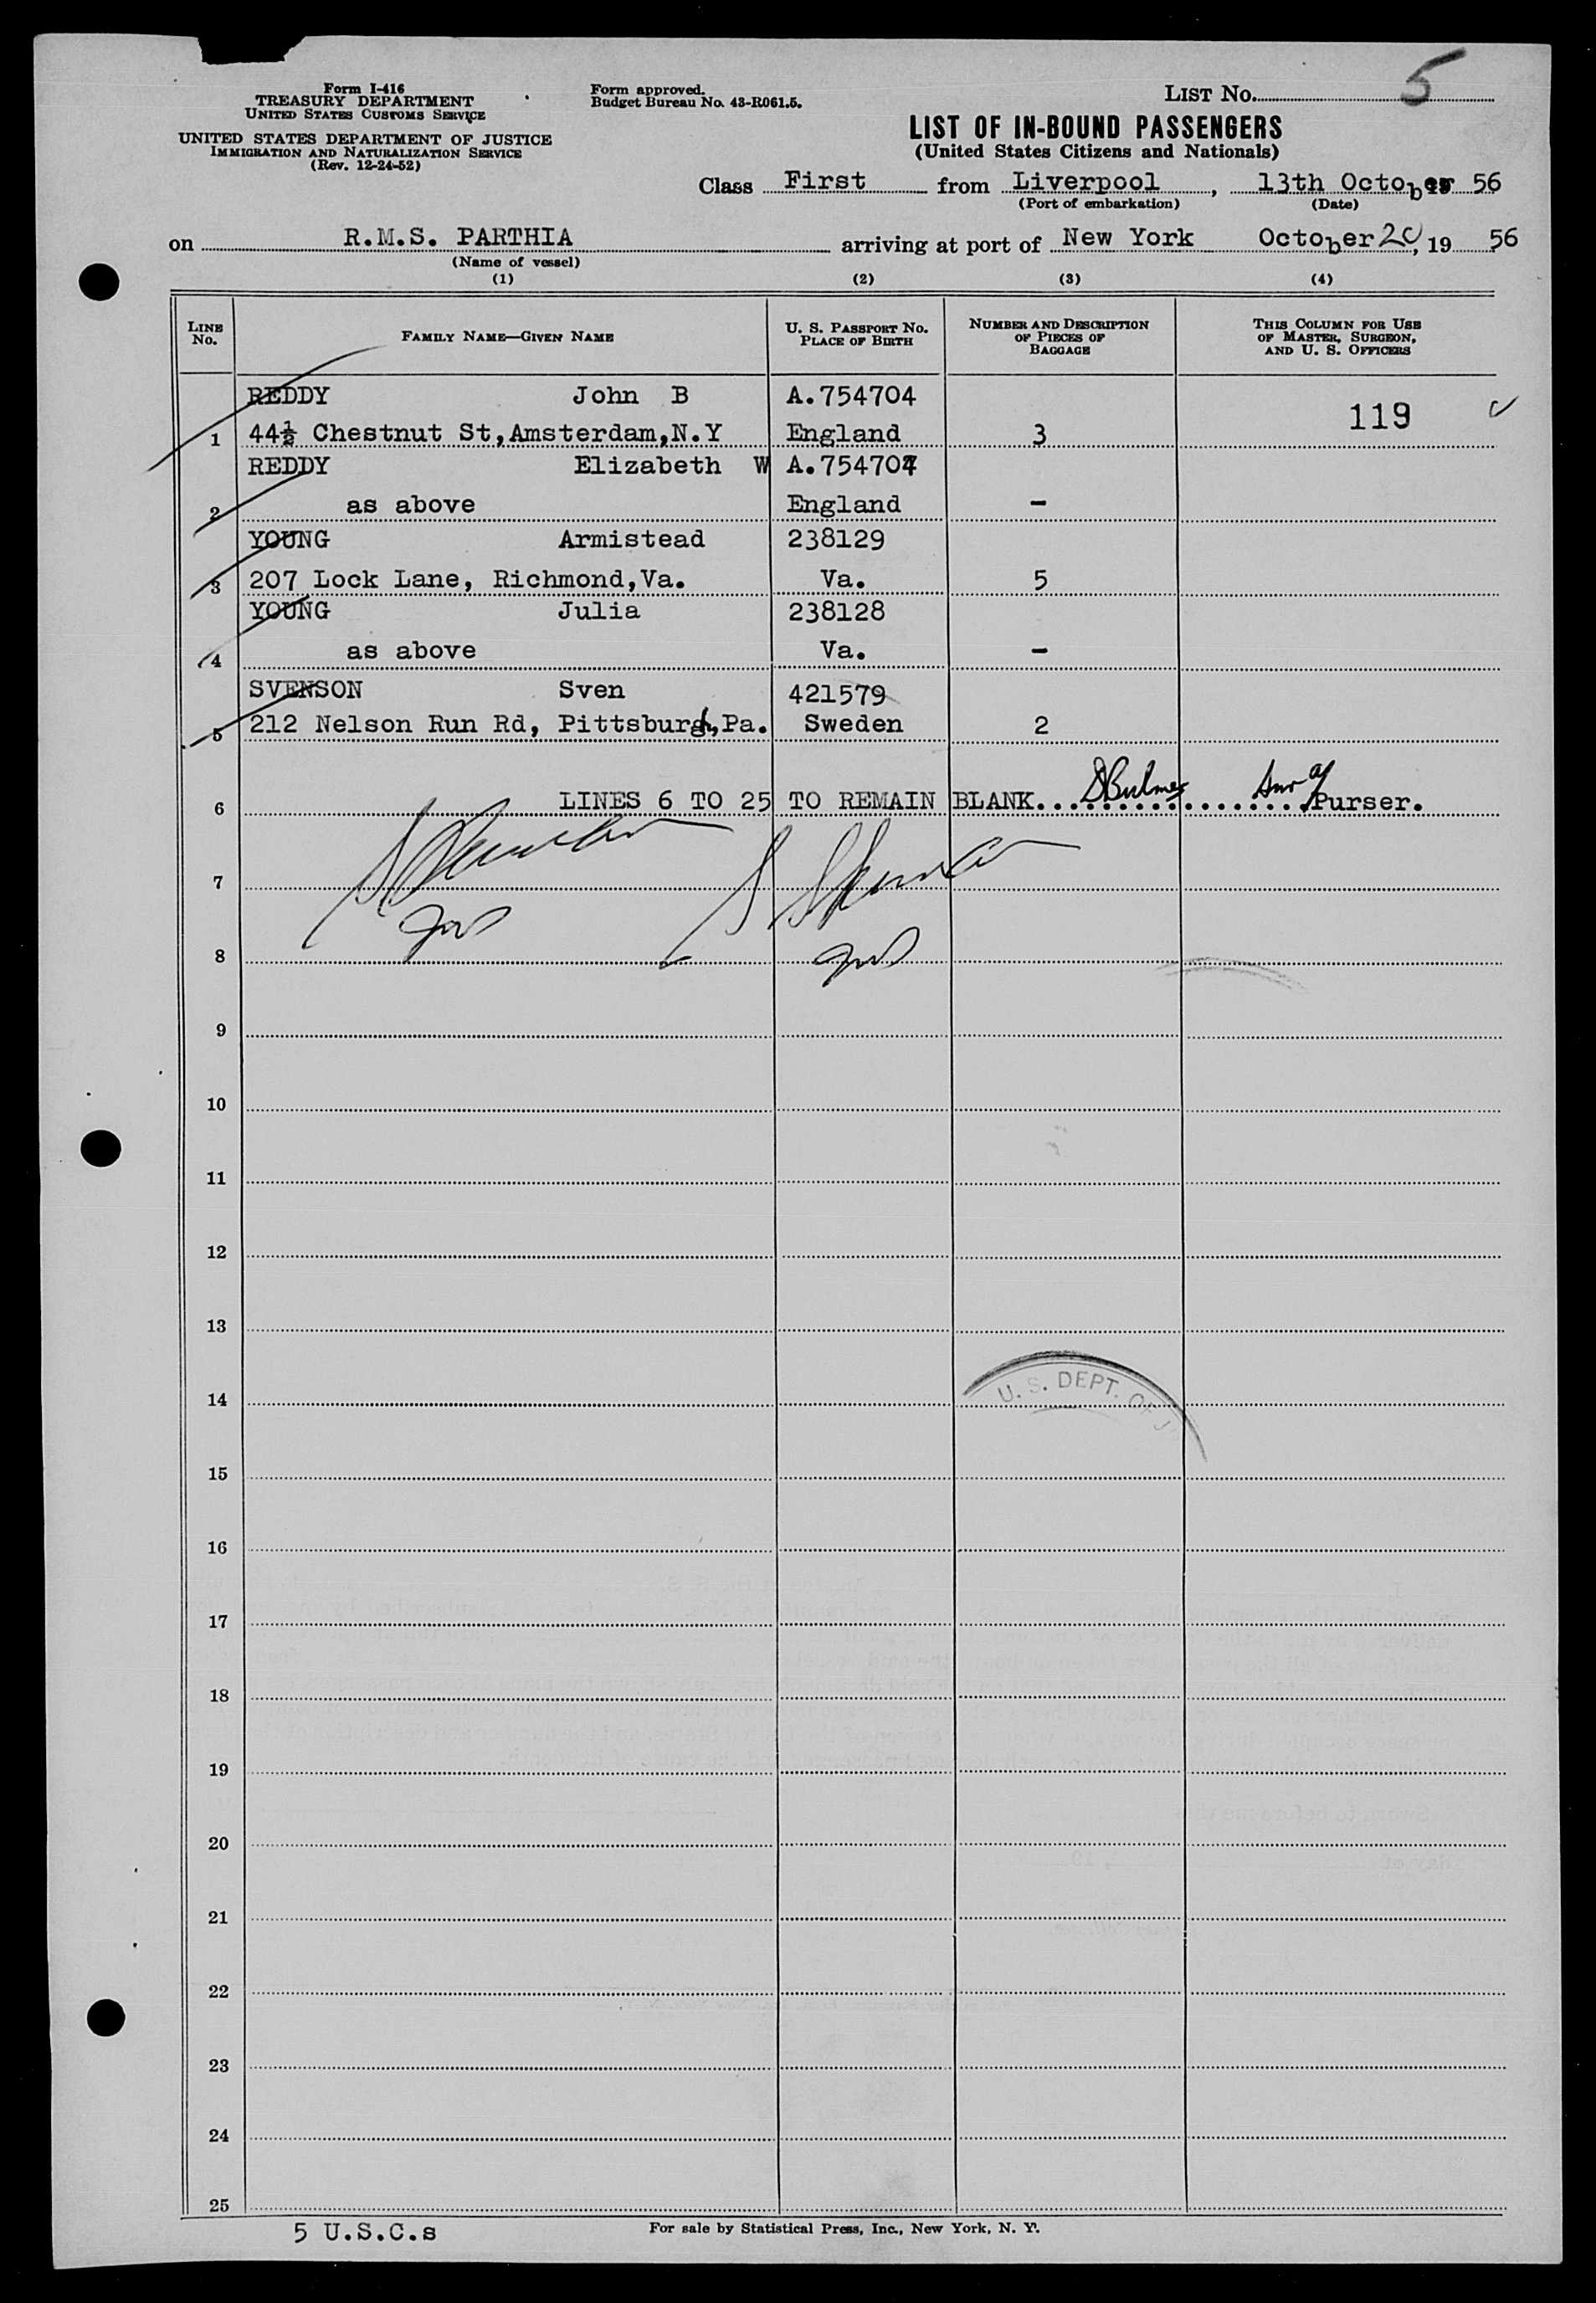 Form I-416
TREASURY DEPARTMENT
UNITED STATES CUSTOMS SERVICE
UNITED STATES DEPARTMENT OF JUSTICE
IMMIGRATION AND NATURALIZATION SERVICE
(Rev. 12-24-52)
Form approved.
Budget Bureau No. 43-R061.5.
LIST No. 5
LIST OF IN-BOUND PASSENGERS
(United States Citizens and Nationals)
Class First from Liverpool, 13th October 56
(Port of embarkation) (Date)
on R.M.S. PARTHIA arriving at port of New York October 20, 19 56
(Name of vessel)
(1) (2) (3) (4)
LINE No. FAMILY NAME—GIVEN NAME U. S. PASSPORT No. PLACE OF BIRTH NUMBER AND DESCRIPTION OF PIECES OF BAGGAGE THIS COLUMN FOR USE OF MASTER, SURGEON, AND U. S. OFFICERS
REDDY John B A.754704 119
1 44½ Chestnut St,Amsterdam,N.Y England 3
REDDY Elizabeth W A.754707
2 as above England -
YOUNG Armistead 238129
3 207 Lock Lane, Richmond,Va. Va. 5
YOUNG Julia 238128
4 as above Va. -
SVENSON Sven 421579
5 212 Nelson Run Rd, Pittsburgh,Pa. Sweden 2
6 LINES 6 TO 25 TO REMAIN BLANK. Purser.
7
8
9
10
11
12
13
14
U. S. DEPT. OF J
15
16
17
18
19
20
21
22
23
24
25
5 U.S.C.s
For sale by Statistical Press, Inc., New York, N. Y.